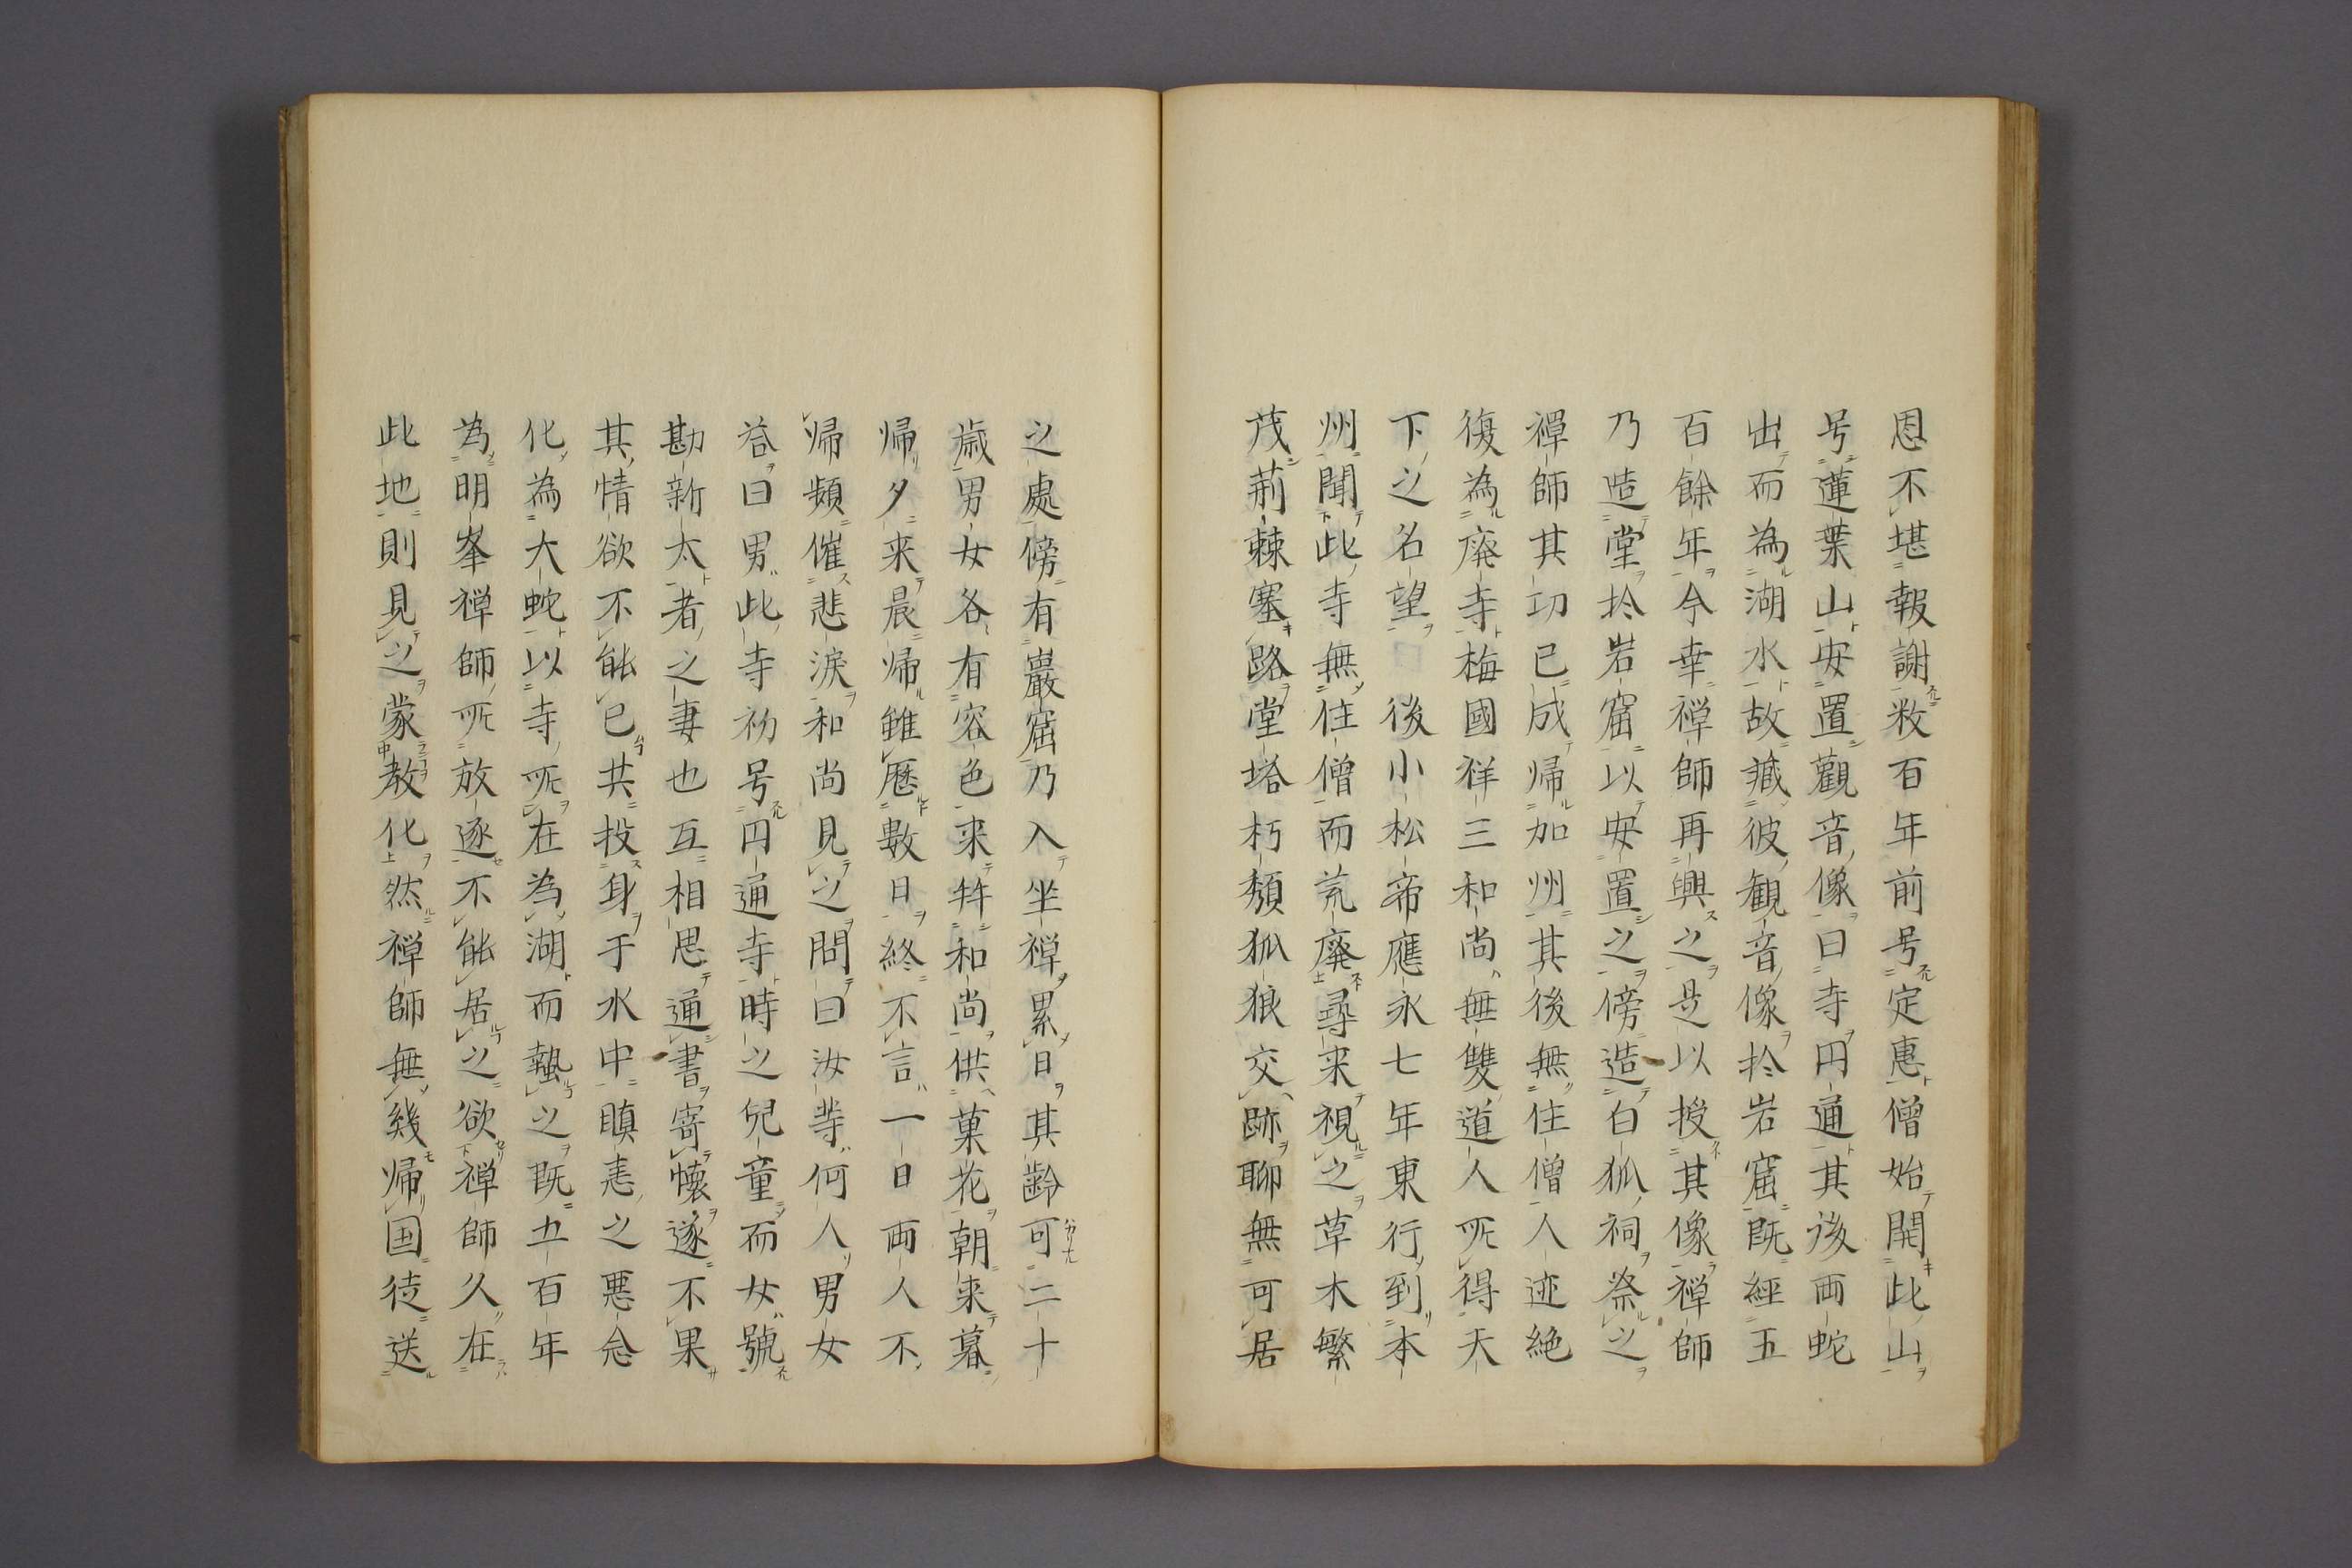 恩不堪報謝数百年前号定惠僧始開此山
号蓮葉山安置觀音像曰寺円通其後両蛇
出而為湖水故藏彼観音像於岩窟既經五
百餘年今幸禅師再興之是以授其像禅師
乃造堂於岩窟以安置之傍造白狐祠祭之
禅師其功已成帰加州其後無住僧人迹絶
復為廃寺梅國祥三和尚無雙道人所得天
下之名望　後小松帝應永七年東行到本
州聞此寺無住僧而荒廃尋来視之草木繁
茂荊棘塞路堂塔朽頽狐狼交跡聊無可居
之處傍有巖窟乃入坐禅累日其齢可二十
歳男女各有容色来拝和尚供菓花朝来暮
帰夕来晨帰雖歴數日終不言一日両人不
帰頻催悲涙和尚見之問曰汝等何人男女
答曰男此寺初号円通寺時之兒童而女號
勘新太者之妻也互相思通書寄懷遂不果
其情欲不能已共投身于水中瞋恚之悪念
化為大蛇以寺所在為湖而蟄之既五百年
為明峯禅師所放逐不能居之欲禅師久在
此地則見之蒙教化然禅師無幾帰国徒送